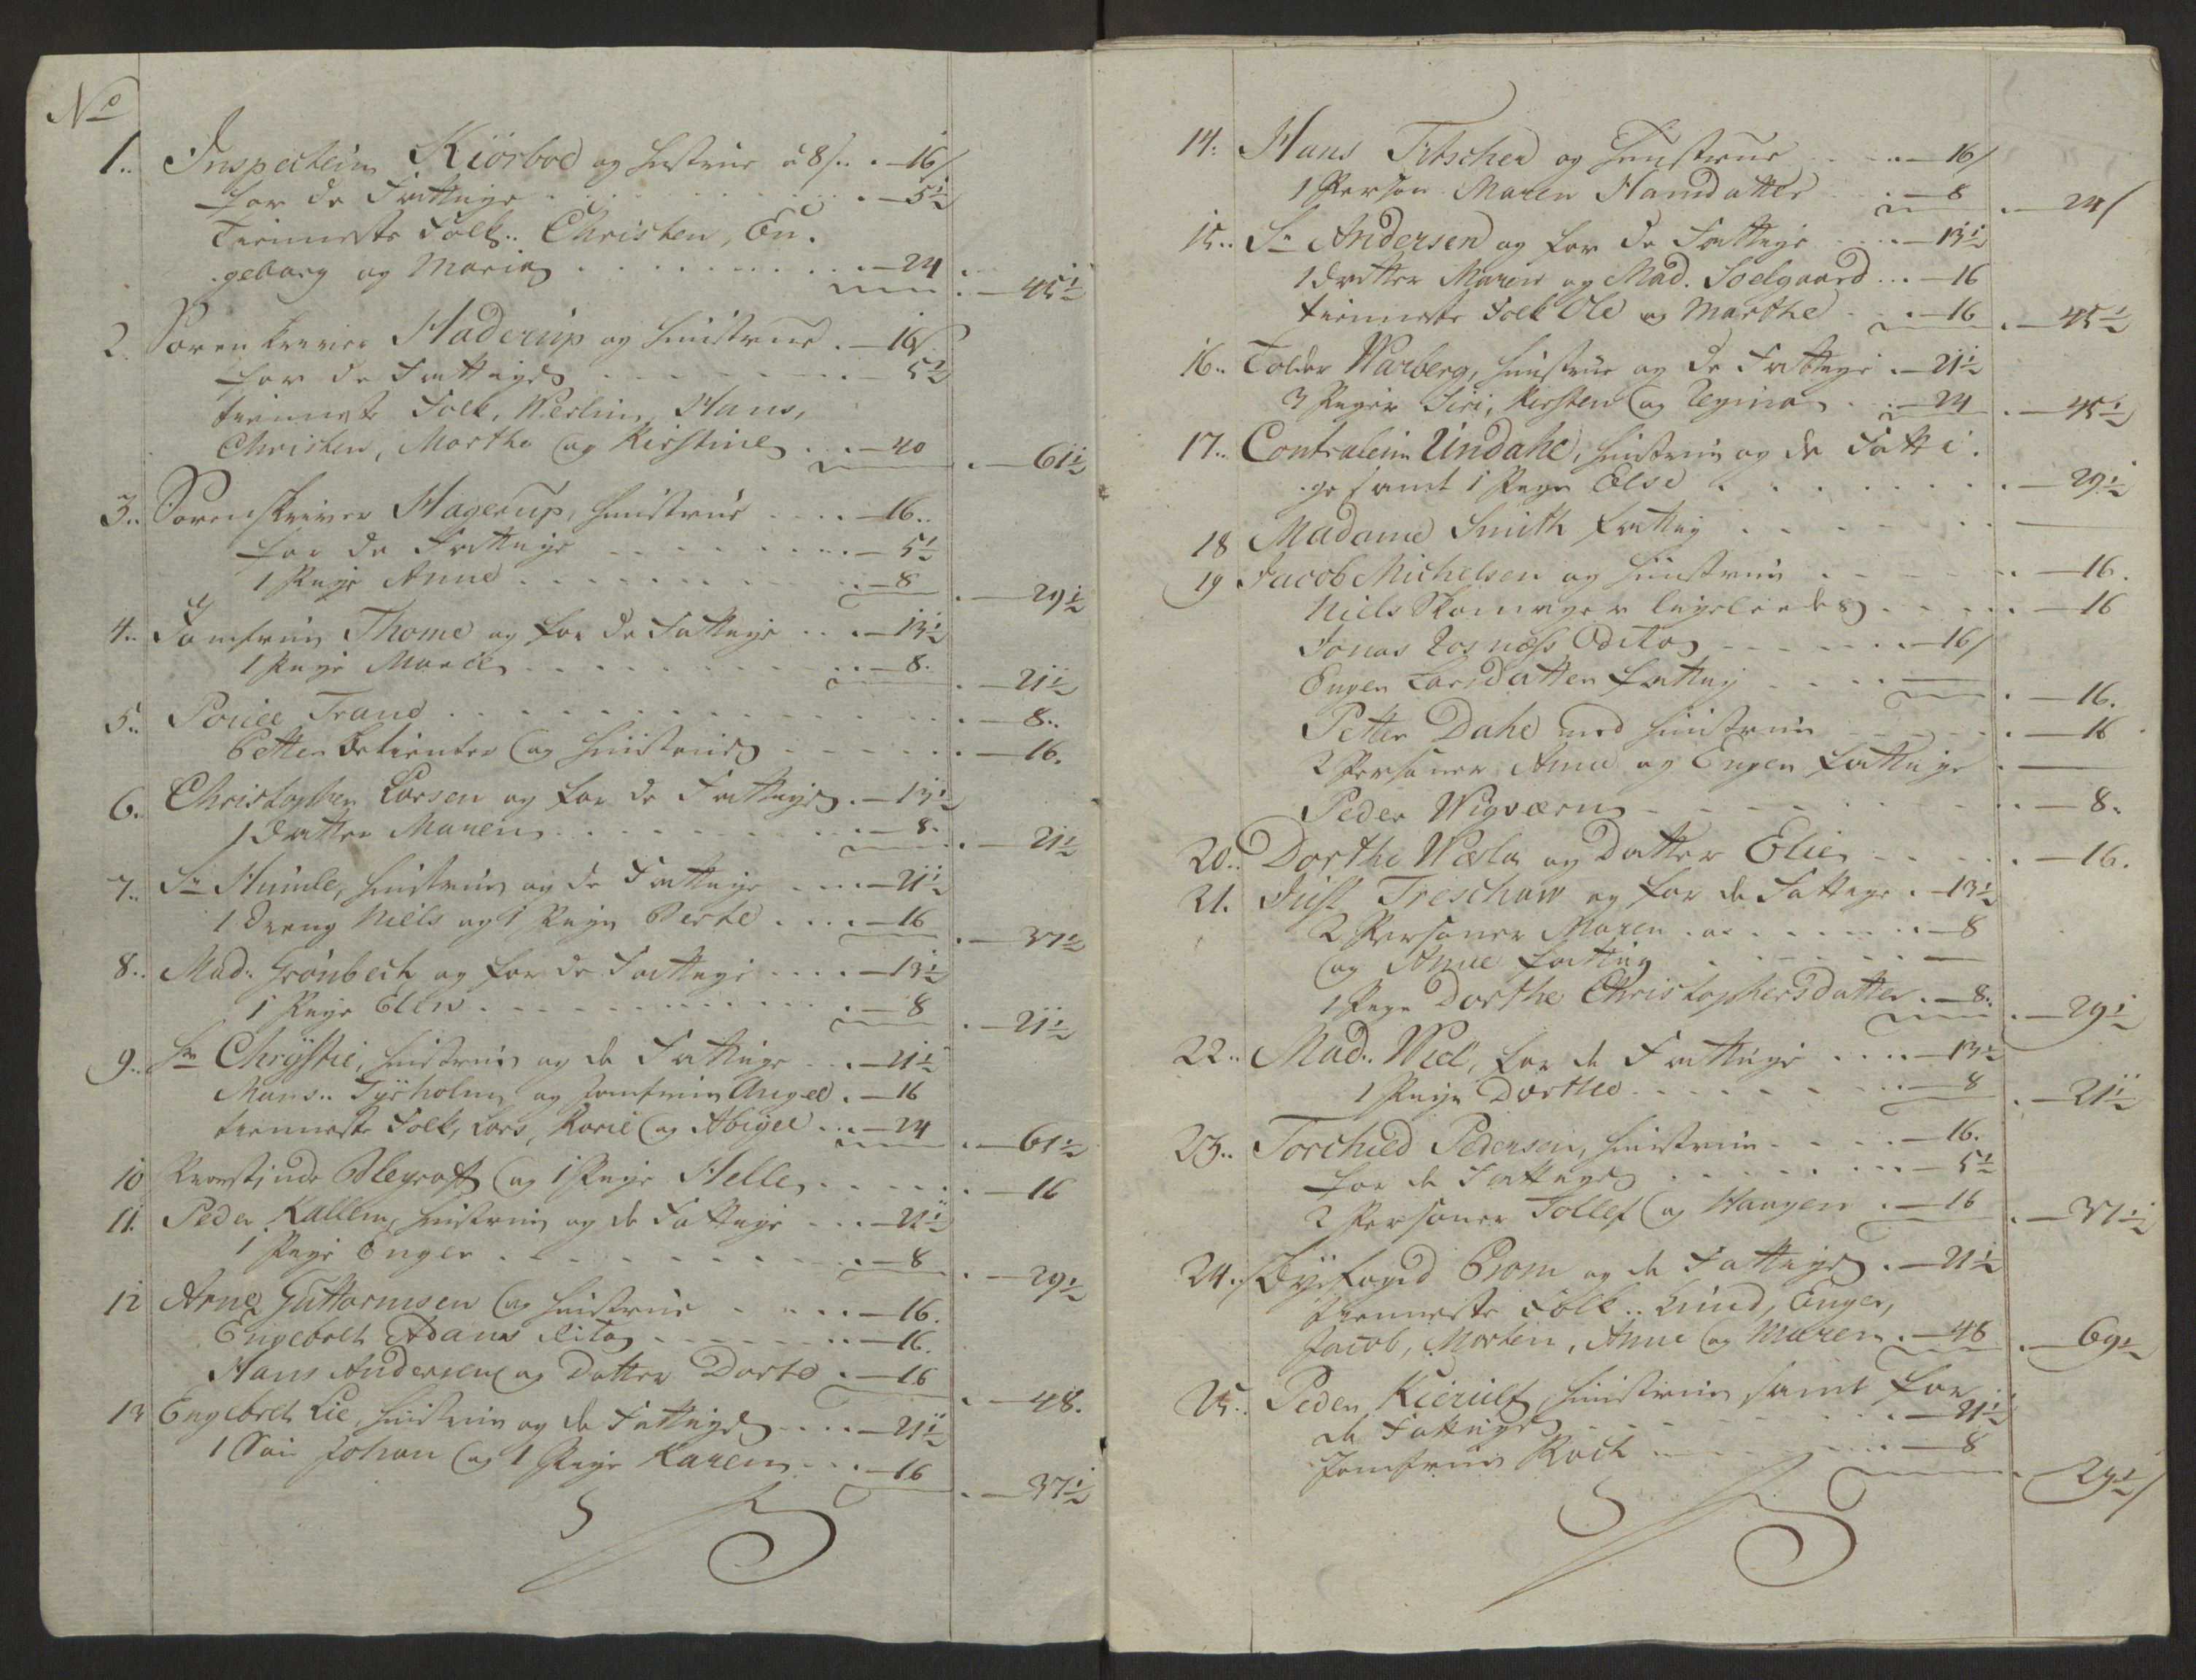 No
1.. Inspecteur Kiörboe og Hustrue á 8 s. . - 16 s
for de Fattige . . . - 5 1/2
Tienneste Folk.. Christen, En.
geborg og Marie . . . - 24 . - 45 1/2
2. Sorenskriver Haderup og Huustrue . - 16 s
for de Fattige . . . - 5 1/2
tienneste Folk, Hans,
Christen, Marthe og Kirstine . . - 40 . - 61 1/2
3.. Sorenskriver Hagerup, Huustrue . . . - 16..
for de Fattige . . . - 5 1/2
1 Pige Anne . . . - 8 . - 29 1/2
4.. Jomfrue Thome og for de Fattige . . . - 13 1/2
1 Pige Marie . . . - 8. . - 21 1/2
5.. Povel Trane . . . - 8..
Petter Betienter og Huustrue . . . - 16.
6. Christopher Larsen og for de Fattige . - 13 1/2
1 Datter Maren . . . - 8. . - 21 1/2
7.. Sr Humle, Huustrue og de Fattige . . . - 21 1/2
1 Dreng Niels og 1 Pige Berte . . . - 16 . - 37 1/2
8.. Mad: Grönbech og for de Fattige . . . - 13 1/2
1 Pige Elen . . . - 8 . - 21 1/2
9.. Hr Chrÿstie, Huustrue og de Fattige . . - 21 1/2
Mons.. Tÿrholm og Jomfrue Angel . - 16
tienneste Folk, Lars, Karie og Abigel . . - 24 . - 61 1/2
10 Provstinde Bleyraft og 1 Pige Helle . . . - 16
11. Peder Kallem, Huustrue og de Fattige . . . - 21 1/2
1 Pige Enger . . . - 8 . - 29 1/2
12 Arne Guttormsen og Huustrue . . . - 16.
Engebret Adams dito . . . - 16.
Hans Andersen og Datter Dorte . - 16 . - 48.
13 Engebret Lie, Huustrue og de Fattige . . . - 21 1/2
1 Søn Johan og 1 Pige Karen . . . - 16 . - 37 1/2
14: Hans Fitscher og Huustrue . . . - 16 s
1 Person Maren Hansdatter . - 8 . - 24 s
15.. Sr Andersen og for de Fattige . . . - 13 1/2
1 Datter Maren og Mad. Soelgaard . . . - 16
tienneste Folk Ole og Marthe . . - 16 . - 45 1/2
16.. Tolder Warberg, Huustrue og de Fattige . - 21 1/2
3 Piger Siri, Kirsten og Regina . . - 24 . - 45 1/2
17.. Contraleur Undahl, Huustrue og de Fatti.
ge samt 1 Pige Else . . . - 29 1/2
18 Madame Smith fattig . . . -
19 Jacob Michelsen og Huustrue . . . - 16.
Niels Skomager ligeleedes . . . - 16
Jonas Rosnæss Ditto . . . - 16 s
Engen Larsdatter fattig . . . - . - 16.
Petter Dahl med Huustrue . . . - 16
2 Personer Anne og Engen fattige . -
Peder Wigværn . . . - 8.
20.. Dorthe Wærla og Datter Elie . . . - 16.
21. Just Treschow og for de Fattige . - 13 1/2
2 Personer Maren . . . - 8
og Anne fattig . . . -
1 Pige Dorthe Christophersdatter . - 8.. . - 29 1/2
22.. Mad.. Weel, for de Fattige . . . - 13 1/2
1 Pige Dorthe . . . - 8 . - 21 1/2
23.. Torchild Pedersen, Huustrue . . . - 16.
for de Fattige . . . - 5 1/2
2 Personer Tollef og Haagen . - 16 . - 37 1/2
24.. Bÿefoged Brom og de Fattige . - 21 1/2
Tienneste Folk.. Lund, Enger,
Jacob, Morten, Anne og Maren . - 48 . - 69 1/2
25.. Peder Kierulf Huustrue samt for
de Fattige . . . - 21 1/2
Jomfrue Koch . . . - 8 . 29 1/2 s